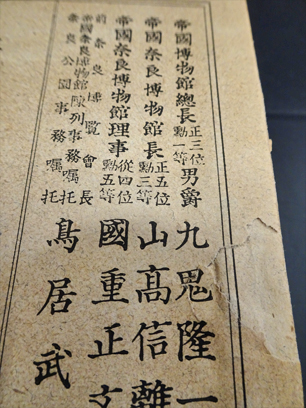 帝國博物館總長 正三位 勲一等 男爵 九鬼隆一
帝國奈良博物館長 正五位 勲三等 山高信離
帝國奈良博物館理事 從四位 勲五等 國重正文
前奈良博覽會長
帝國奈良博物館陳列事務囑托
奈良公園事務囑托
鳥居武